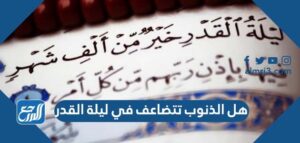 لَيْلَةُ الْقَدْرِ خَيْرٌ مِّنْ أَلْفِ شَهْرٍ
بِإِذْنِ رَبِّهِم مِّن كُلِّ أَمْرٍ
almrj3.com
هل الذنوب تتضاعف في ليلة القدر
المرجع